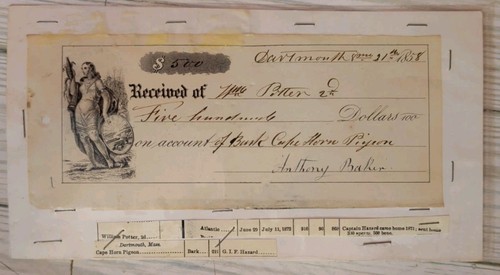 $ 500
Dartmouth 8mo 21th 1858
Received of Wm Potter 2d
Five hundred Dollars
on account of Bark Cape Horn Pigeon
Anthony Baker
William Potter, 2d
Atlantic June 20 July 11, 1872
Captain Hazard came home 1871; sent home
210 sperm, 300 bone.
Dartmouth, Mass.
Cape Horn Pigeon Bark G. I. F. Hazard